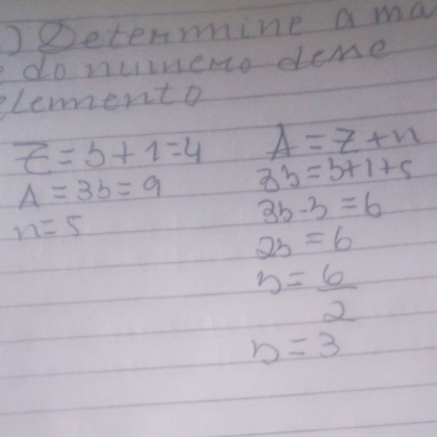 ) Determine a ma
e do numero dene
elemento
Z = b + 1 = 4
A = 3b = 9
n = 5
A = Z + n
3b = b + 1 + 5
3b - b = 6
2b = 6
b = 6
2
b = 3